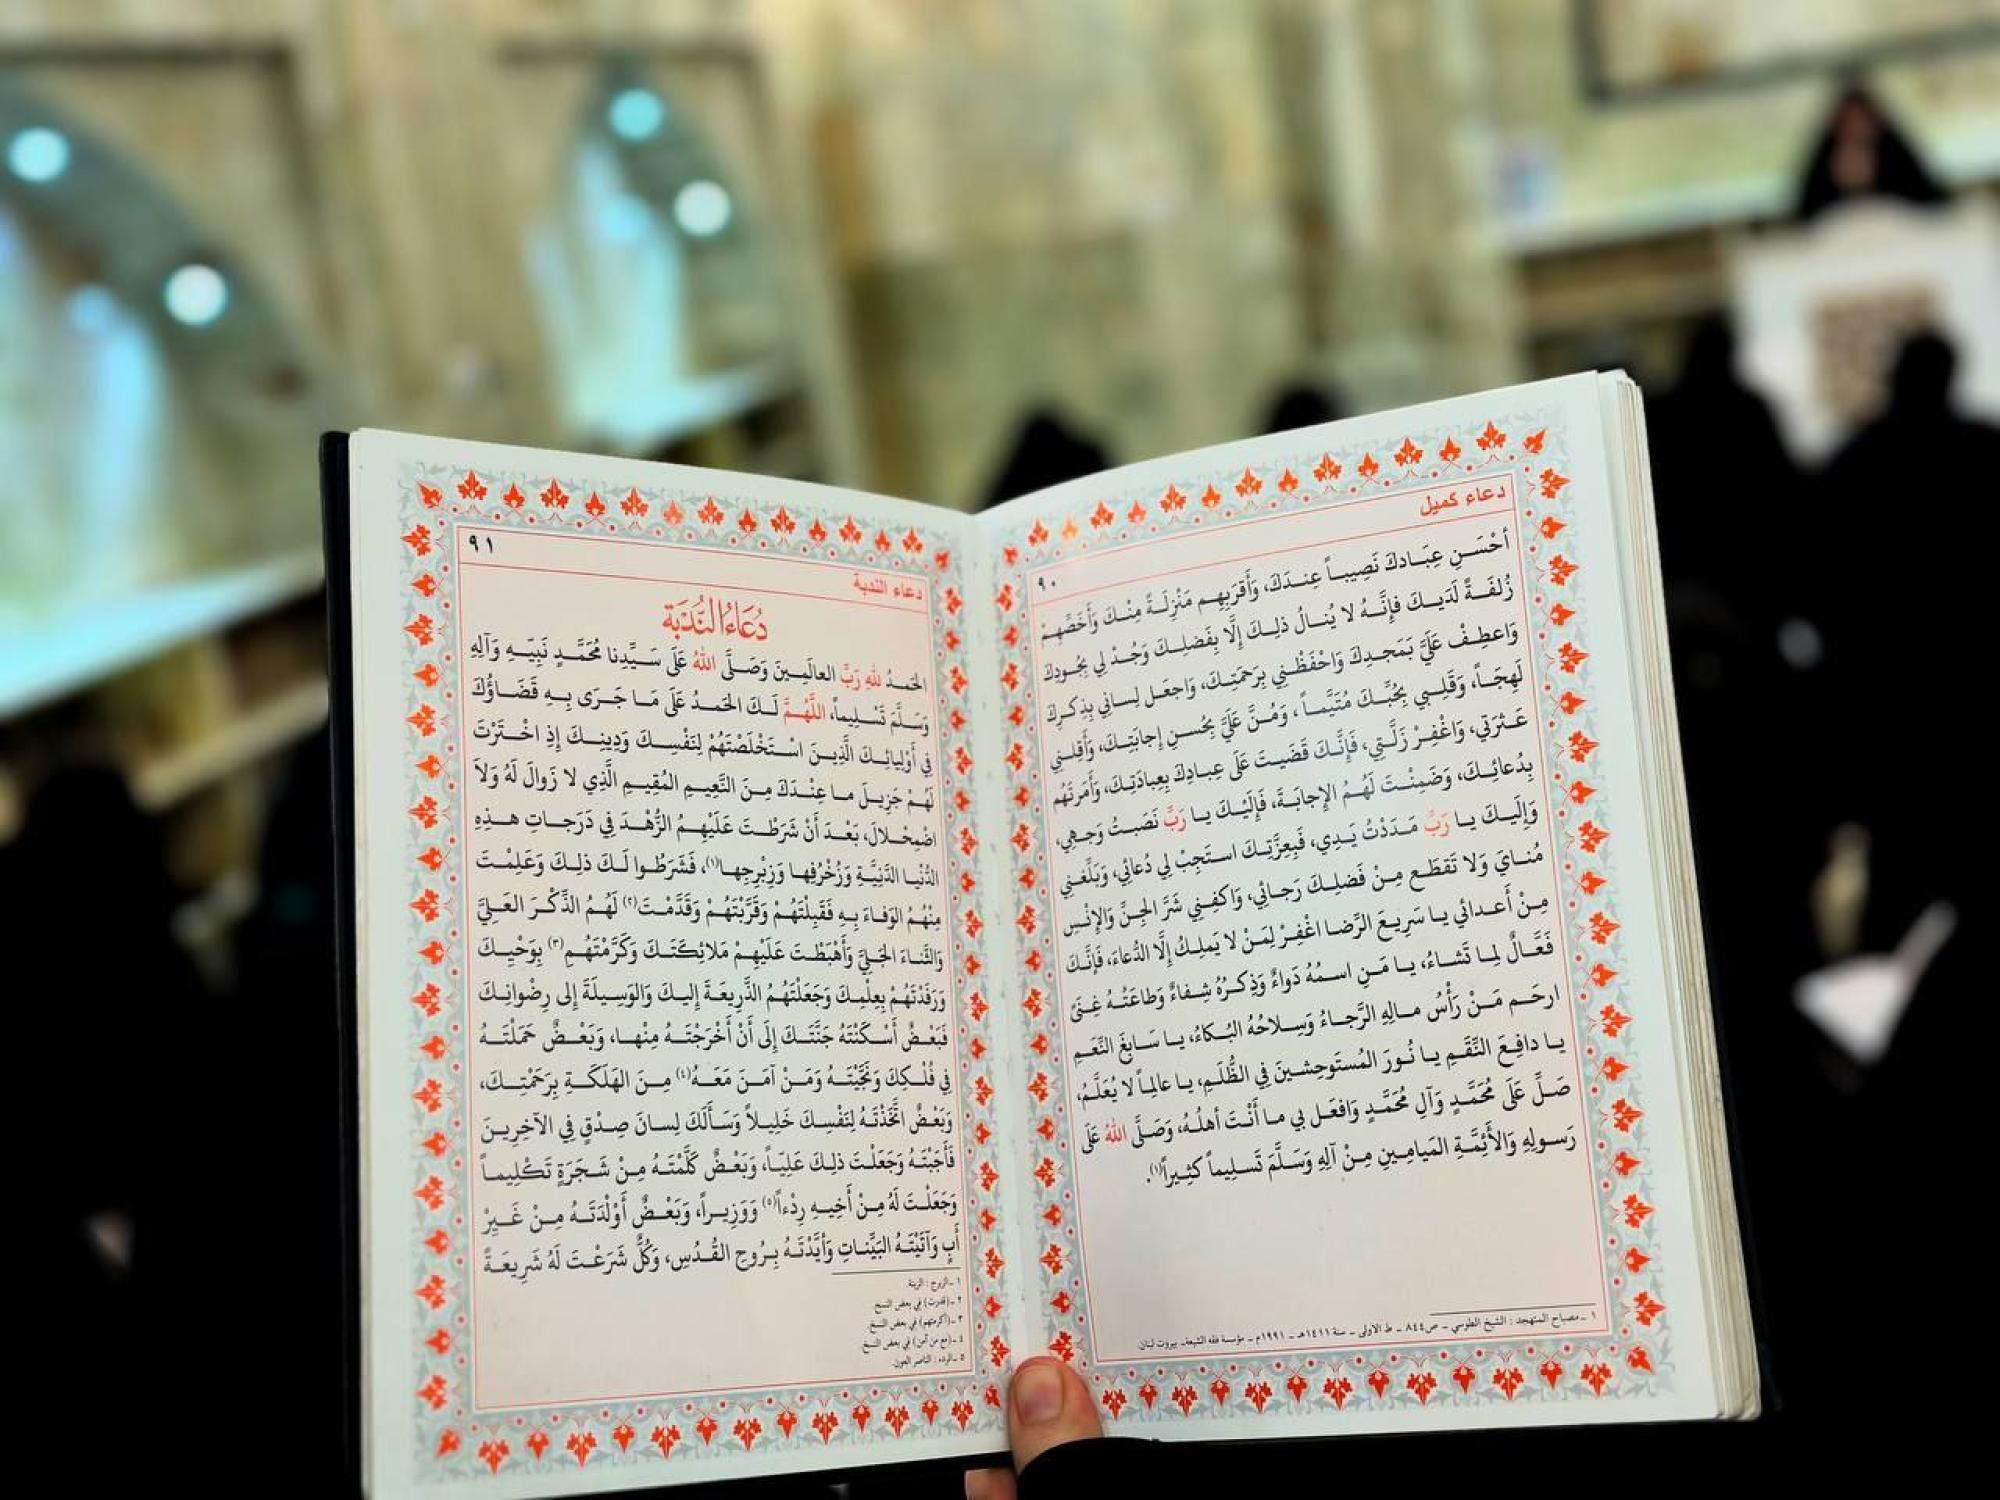 دعاء كميل
٩٠
أحْسَـنِ عِبَـادكَ نَصِيبـاً عِنـدَكَ، وَأقرَبِهِـم مَنْزِلَـةً مِنْـكَ وَأخَصِّهِـمْ
زُلفَـةً لَدَيـكَ فإنَّـهُ لا يُنـالُ ذلِـكَ إلَّا بِفَضلِـكَ وَجُـدْ لي بِجُـودِكَ
وَاعطِـفْ عَلَيَّ بِمَجـدِكَ وَاحْفَظْـنِي بِرَحمَتِـكَ، وَاجعَـل لِسانِي بِذِكـرِكَ
لَهِجَـاً، وَقَلـبِي بِحُبِّـكَ مُتَيَّمـاً، وَمُـنَّ عَلَيَّ بِحُسـنِ إجابَتِـكَ، وَأقِلـنِي
عَـثرَتي، وَاغْفِـرْ زَلَّـتِي، فَإنَّـكَ قَضَيـتَ عَلَى عِبـادِكَ بِعِبادَتِـكَ، وَأمَرتَهُم
بِدُعائِـكَ، وَضَمِنْـتَ لَهُـمُ الإجابَـةَ، فَإلَيْـكَ يـا رَبِّ نَصَبـتُ وَجـهِي،
وَإلَيـكَ يـا رَبِّ مَـدَدْتُ يَـدِي، فَبِعِزَّتِـكَ استَجِبْ لِي دُعائِي، وَبَلِّغـنِي
مُنـايَ وَلا تَقطَـع مِـنْ فَضلِـكَ رَجـائِي، وَاكفِـنِي شَرَّ الجِـنِّ وَالإنْـسِ
مِـنْ أعـدائِي يـا سَرِيـعَ الرِّضـا اغْفِـرْ لِمَـنْ لا يَملِـكُ إلَّا الدُّعـاءَ، فَإنَّـكَ
فَعَّـالٌ لِمـا تَشـاءُ، يـا مَـنِ اسـمُهُ دَواءٌ وَذِكـرُهُ شِـفاءٌ وَطاعَتُـهُ غِـنًى
ارحَـم مَـنْ رَأسُ مـالِهِ الرَّجـاءُ وَسِـلاحُهُ البُـكاءُ، يـا سَـابِغَ النِّعَـمِ
يـا دافِـعَ النِّقَـمِ يـا نُـورَ المُستَوحِشـينَ فِي الظُّلَـمِ، يـا عالِمـاً لا يُعَلَّـمُ،
صَـلِّ عَلَى مُحَمَّـدٍ وَآلِ مُحَمَّـدٍ وَافعَـل بي مـا أنْـتَ أهلُـهُ، وَصَلَّى اللهُ عَلَى
رَسـولِهِ وَالأئِمَّـةِ المَيامِـينِ مِـنْ آلِهِ وَسَلَّمَ تَسلِيماً كَثِـيراً(١).
١ ـ مصباح المتهجد : الشيخ الطوسي ـ ص٨٤٤ ـ ط الاولى ـ سنة ١٤١١هـ ـ ١٩٩١م ـ مؤسسة فقه الشيعة ـ بيروت لبنان.
٩١
دعاء الندبة
دُعَاءُ النُّدْبَة
الحَمدُ للهِ رَبِّ العالَمِـينَ وَصَلَّى اللهُ عَلَى سَـيِّدِنا مُحَمَّـدٍ نَبِيِّـهِ وَآلِهِ
وَسَلَّمَ تَسْـلِيماً، اللَّهُـمَّ لَـكَ الحَمـدُ عَلَى مَـا جَـرَى بِـهِ قَضَـاؤُكَ
فِي أوْلِيائِـكَ الَّذِيـنَ اسْـتَخْلَصْتَهُمْ لِنَفْسِـكَ وَدِينِـكَ إذِ اخْـتَرْتَ
لَهُـمْ جَزِيـلَ مـا عِنْـدَكَ مِـنَ النَّعِيـمِ المُقِيـمِ الَّذِي لا زَوالَ لَهُ وَلَا
اضْمِحْـلالَ، بَعْـدَ أنْ شَرَطْـتَ عَلَيْهِـمُ الزُّهْـدَ فِي دَرَجـاتِ هـذِهِ
الدُّنْيـا الدَّنِيَّـةِ وَزُخْرُفِهـا وَزِبْرِجِهـا(١)، فَشَرَطُـوا لَـكَ ذلِـكَ وَعَلِمْـتَ
مِنْهُـمُ الوَفـاءَ بِـهِ فَقَبِلْتَهُـمْ وَقَرَّبْتَهُـمْ وَقَدَّمْـتَ(٢) لَهُـمُ الذِّكْـرَ العَلِيَّ
وَالثَّنـاءَ الجَـلِيَّ وَأهْبَطْـتَ عَلَيْهِـمْ مَلائِكَتَـكَ وَكَرَّمْتَهُـمِ(٣) بِوَحْيِـكَ
وَرَفَدْتَهُـمْ بِعِلْمِـكَ وَجَعَلْتَهُـمُ الذَّرِيعَـةَ إلَيـكَ وَالوَسِيلَةَ إلى رِضْوانِـكَ
فَبَعْـضٌ أسْـكَنْتَهُ جَنَّتَـكَ إلَى أنْ أخْرَجْتَـهُ مِنْهـا، وَبَعْـضٌ حَمَلْتَـهُ
فِي فُلْـكِكَ وَنَجَّيْتَـهُ وَمَـنْ آمَـنَ مَعَـهُ(٤) مِـنَ الهَلَكَـةِ بِرَحْمَتِـكَ،
وَبَعْـضٌ اتَّخَذْتَـهُ لِنَفْسِـكَ خَلِيـلاً وَسَـألَكَ لِسـانَ صِـدْقٍ فِي الآخِرِيـنَ
فَأجَبْتَـهُ وَجَعَلْـتَ ذلِـكَ عَلِيّـاً، وَبَعْـضٌ كَلَّمْتَـهُ مِـنْ شَـجَرَةٍ تَكْلِيمـاً
وَجَعَلْـتَ لَهُ مِـنْ أخِيـهِ رِدْءاً(٥) وَوَزِيـراً، وَبَعْـضٌ أوْلَدْتَـهُ مِـنْ غَـيْرِ
أبٍ وَآتَيْتَـهُ البَيِّنـاتِ وَأيَّدْتَـهُ بِـرُوحِ القُـدُسِ، وَكُلٌّ شَرَعْـتَ لَهُ شَرِيعَـةً
١ ـ الزبرج : الزينة.
٢ ـ (قدرت) في بعض النسخ.
٣ ـ (أكرمتهم) في بعض النسخ.
٤ ـ (مع من آمن) في بعض النسخ.
٥ ـ الردء : الناصر العون.